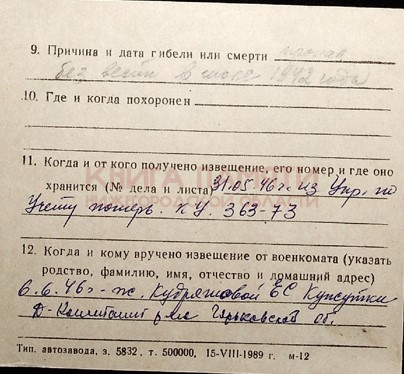 9. Причина и дата гибели или смерти пропав
без вести в июле 1942 года
10. Где и когда похоронен
КНИГА ПАМЯТИ
НИЖЕГОРОДСКОЙ ОБЛАСТИ
11. Когда и от кого получено извещение, его номер и где оно
хранится (№ дела и листа) 31.05.46 г. из Упр. по
учету потерь. КУ. 363-73
12. Когда и кому вручено извещение от военкомата (указать
родство, фамилию, имя, отчество и домашний адрес)
6.6.46 г - ж. Кудряшовой ЕС Кужутки
Д-Константин р-на Горьковской об.
Тип. автозавода, з. 5832, т. 500000, 15-VIII-1989 г. м-12